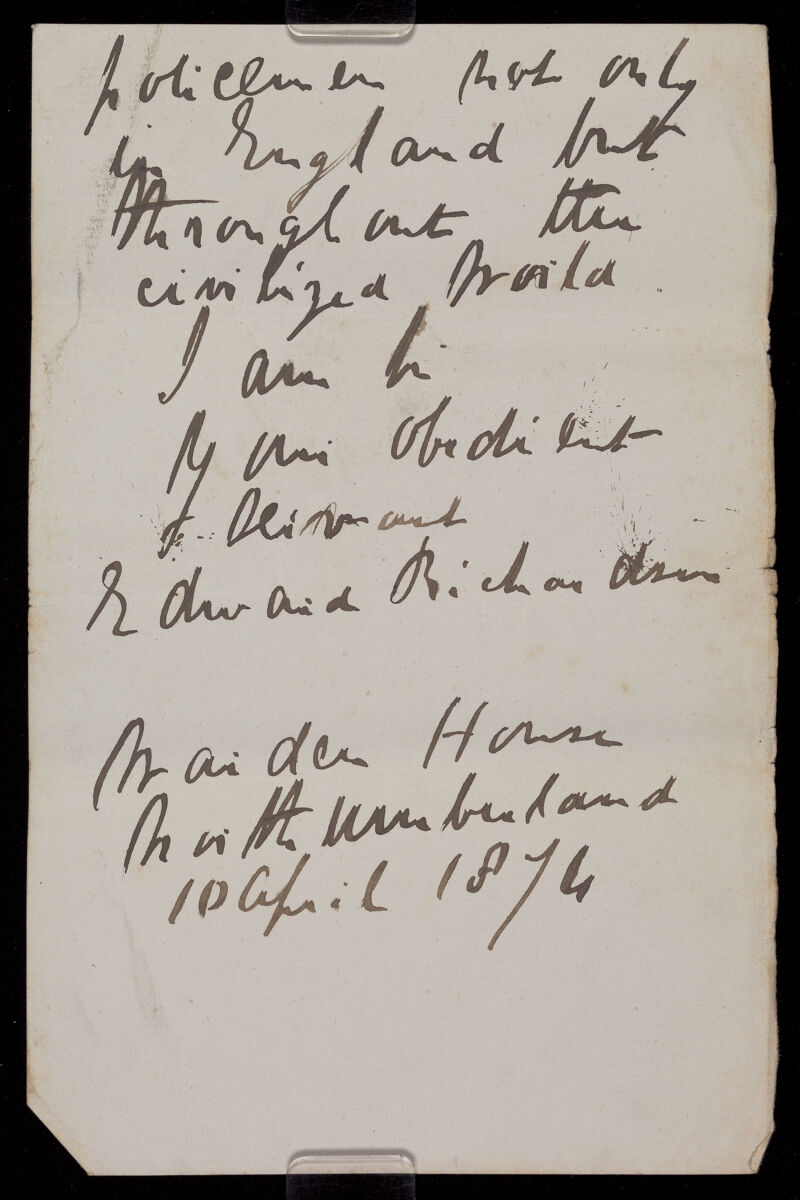 policemen not only
in England but
throughout the
civilized World.
I am Sir
Your obedient
& Servant
Edward Richardson
Warden House
Northumberland
10 April 1874